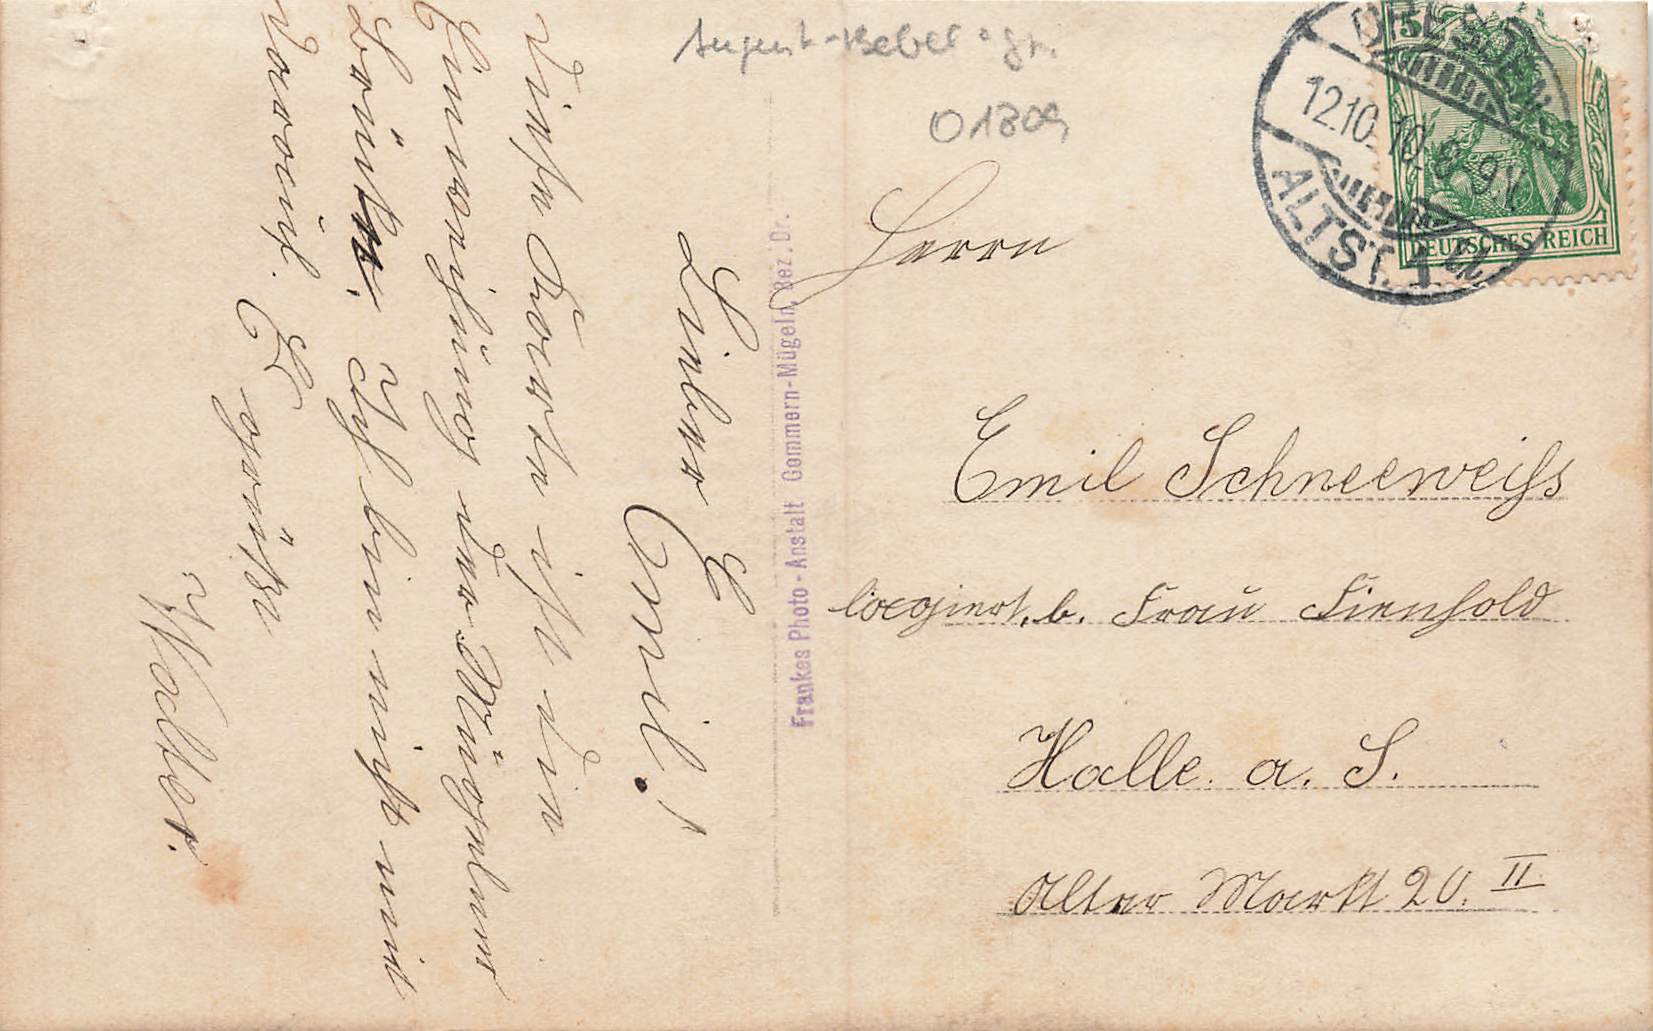 August-Bebel-Str.
01809
DRESDEN
12.10.10. 8-9V.
ALTST. 1 a
5
DEUTSCHES REICH
Herrn
Emil Schneeweiſs
logiert. b. Frau Fienhold
Halle. a. S.
Alter Markt 20. II.
Frankes Photo-Anstalt Gommern-Mügeln, Bez. Dr.
Lieber
Emil!
Diese Karte ist die
Einweihung der Mügelner
Brücke. Ich bin nicht mit
darauf. Es grüßt
Walter.